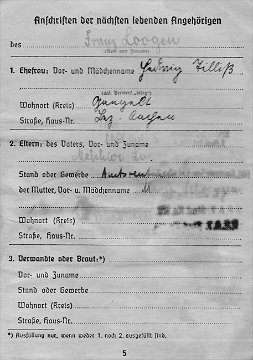 Anschriften der nächsten lebenden Angehörigen
des Franz Loogen
(Vor- und Zuname)
1. Ehefrau: Vor- und Mädchenname Hedwig Zilliß
Wohnort (Kreis)
Straße, Haus-Nr. Bez. Aachen
2. Eltern: des Vaters, Vor- und Zuname
Melchior
Stand oder Gewerbe
der Mutter, Vor- u. Mädchenname
Wohnort (Kreis)
Straße, Haus-Nr.
3. Verwandte oder Braut:*)
Vor- und Zuname
Stand oder Gewerbe
Wohnort (Kreis)
Straße, Haus-Nr.
*) Ausfüllung nur, wenn weder 1. noch 2. ausgefüllt sind.
5